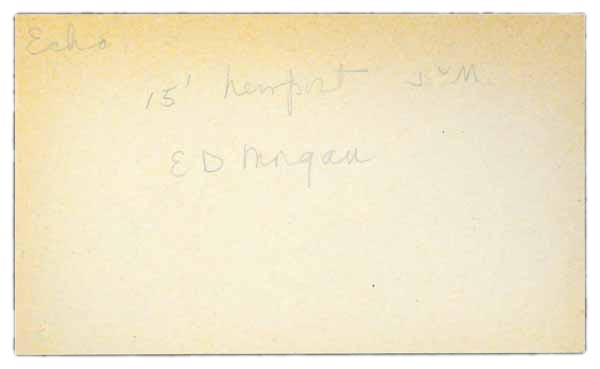 Echo
15' Newport J & M.
E D Morgan